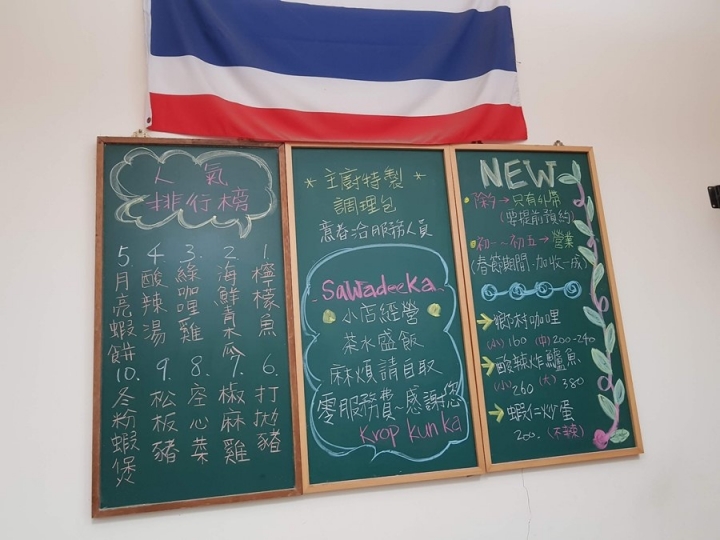 人氣
排行榜
1.檸檬魚
2.海鮮青木瓜
3.綠咖哩雞
4.酸辣湯
5.月亮蝦餅
6.打拋豬
7.椒麻雞
8.空心菜
9.松板豬
10.冬粉蝦煲
*主廚特製*
調理包
意者洽服務人員
Sawadeeka
小店經營
茶水盛飯
麻煩請自取
零服務費~感謝您
Krop kun ka
NEW
除夕→只有外帶
(要提前預約)
初一~初五→營業
(春節期間.加收一成)
鄉村咖哩
(小)160 (中)200-240
酸辣炸鱸魚
(小)260 (大)380
蝦仁炒蛋
200. (不辣)